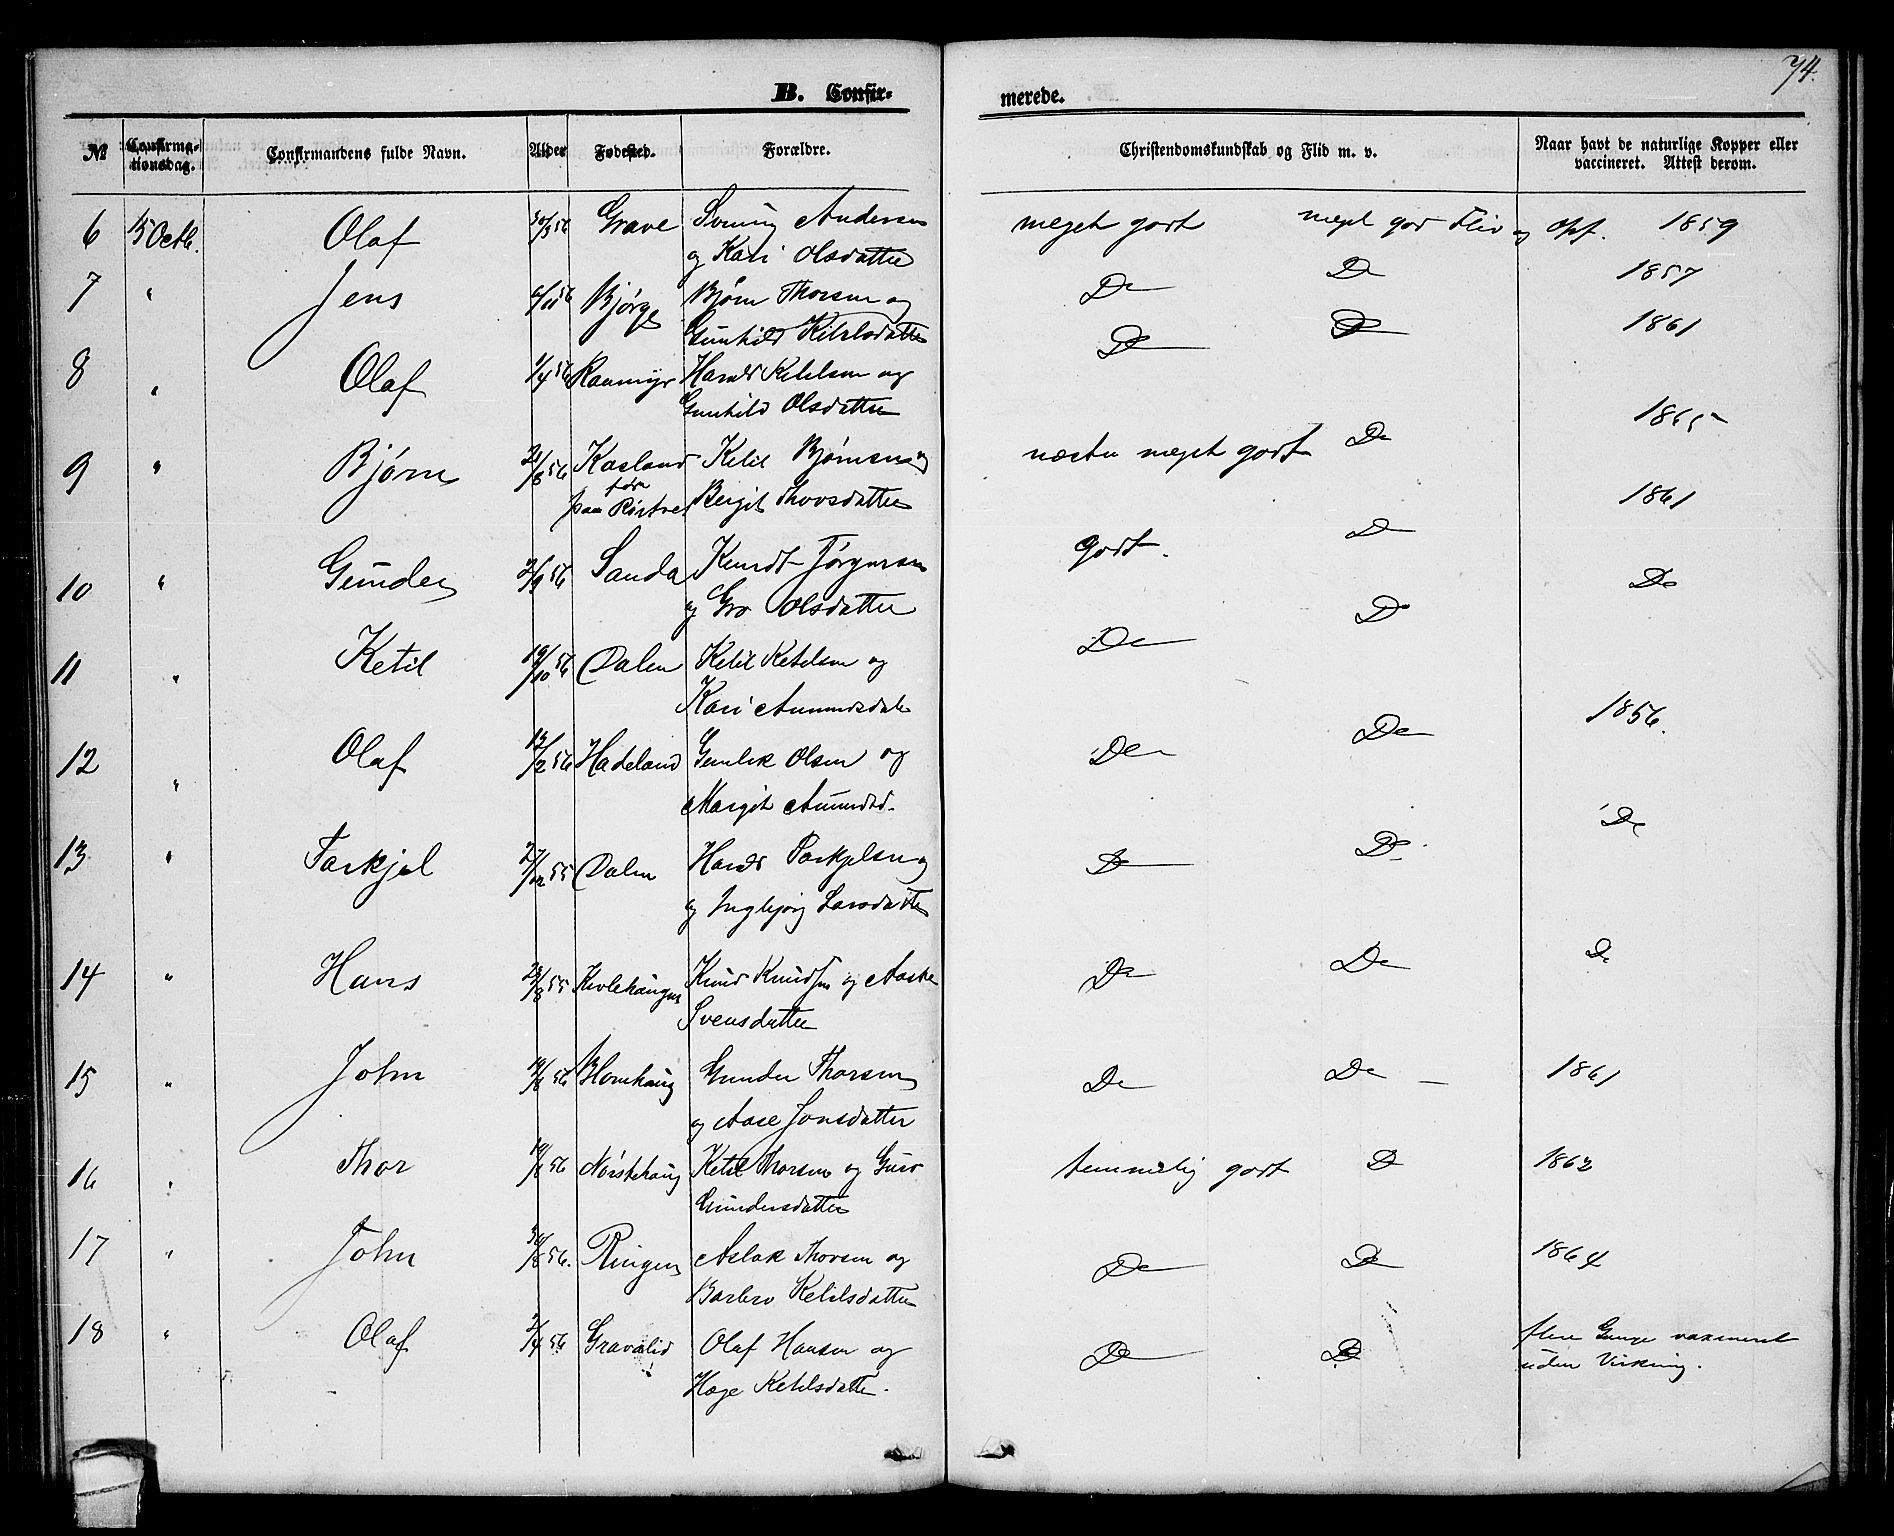 74.
B. Confir- merede.
№ Confirma-tionsdag. Confirmandens fulde Navn. Alder Fødested. Forældre. Christendomskundskab og Flid m. v. Naar havt de naturlige Kopper eller vaccineret. Attest derom.
6 15 Octb. Olaf 30/3 56 Grave Svenning Andersen meget godt meget god Flid og Opf. 1859
og Kari Olsdatter
7 " Jens 56 Bjørge Bjørn Thorsen og Do Do 1857
Gunhild Ketilsdatter
8 " Olaf 1/4 56 Raamyr Harald Ketilsen og Do Do 1861
Gunhild Olsdatter
9 " Bjørn 21/8 56 Kasland Ketil Bjørnsen og næsten meget godt Do 1865
paa Bergit Thovsdatter
10 " Gunder 2/9 56 Sanda Knudt Jørgensen godt. Do 1861
og Gro Olsdatter
11 " Ketil 19/10 56 Dalen Ketil Ketilsen og Do Do Do
Kari Aamundsdatr
12 " Olaf 13/2 56 Hadeland Gunlek Olsen og Do Do 1856.
Margit Aamundsd.
13 " Tarkjel 27/12 55 Dalen Harald Tarkjelsen og Do Do Do
og Ingebjørg Larsdatter
14 " Hans 23/8 55 Kivlehaugen Knud Knudsen og Aaste Do Do Do
Svensdatter
15 " John 19/8 56 Blomhaug Gunder Thorsen Do Do 1861
og Aase Jonsdatter
16 " Thor 56 Norstehaug Ketil Thorsen og Guro temmelig godt Do 1862
Gundersdatter
17 " John 30/8 56. Ringen Aslak Thovsen og Do Do 1864
Barbro Ketilsdatter
18 " Olaf 2/4 56 Gravalid Olaf Hansen og Do Do flere Gange vaxineret
Hæge Ketilsdatter. uden Virkning.